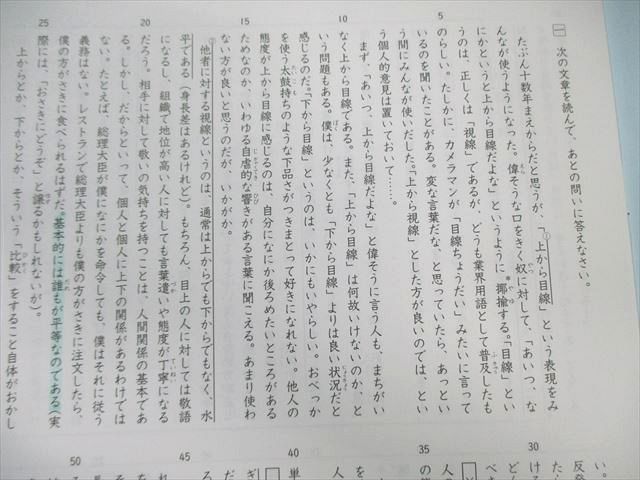 一 次の文章を読んで、あとの問いに答えなさい。
たぶん十数年まえからだと思うが、「上から目線」という表現をみ
んなが使うようになった。偉そうな口をきく奴に対して、「あいつ、な
にかというと上から目線だよな」というように、揶揄する。「目線」とい
うのは、正しくは「視線」であるが、どうも業界用語として普及したも
のらしい。たしかに、カメラマンが「目線ちょうだい」みたいに言って
いるのを聞いたことがある。変な言葉だな、と思っていたら、あっとい
う間にみんなが使いだした。「上から視線」とした方が良いのでは、とい
う個人的意見は置いておいて……。
まず、「あいつ、上から目線だよな」と偉そうに言う人も、まちがい
なく上から目線である。また、「上から目線」は何故いけないのか、と
いう問題もある。僕は、少なくとも「下から目線」よりは良い状況だと
感じるのだ。「下から目線」というのは、いかにもいやらしい。おべっか
を使う太鼓持ちのような下品さがつきまとって好きになれない。他人の
態度が上から目線に感じるのは、自分になにか後ろめたいところがある
ためなのか、いわゆる自虐的な響きがある言葉に聞こえる。あまり使わ
ない方が良いと思うのだが、いかがか。
他者に対する視線というのは、通常は上からでも下からでもなく、水
平である（身長差はあるけれど）。もちろん、目上の人に対しては敬語
になるし、組織で地位が高い人に対しても言葉遣いや態度が丁寧になる
だろう。相手に対して敬いの気持ちを持つことは、人間関係の基本であ
る。しかし、だからといって、個人と個人に上下の関係があるわけでは
ない。たとえば、総理大臣が僕になにかを命令しても、僕はそれに従う
義務はない。レストランで総理大臣よりも僕の方がさきに注文したら、
僕の方がさきに食べられるはずだ。基本的には誰もが平等なのである（実
際には、「おさきにどうぞ」と譲るかもしれないが）。
上からとか、下からとか、そういう「比較」をすること自体がおかし
5
10
15
20
25
30
35
40
45
50